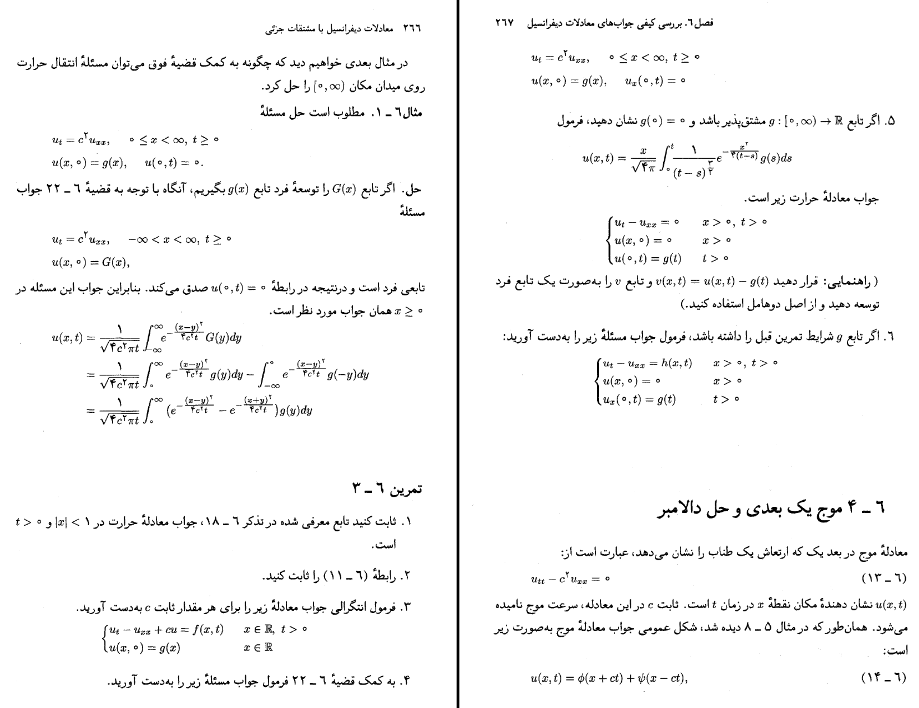 ۲۶۶ معادلات دیفرانسیل با مشتقات جزئی
در مثال بعدی خواهیم دید که چگونه به کمک قضیهٔ فوق می‌توان مسئلهٔ انتقال حرارت
روی میدان مکان [۰, ∞) را حل کرد.
مثال ۶ ـ ۱. مطلوب است حل مسئلهٔ
u_t = c^۲ u_{xx}, ۰ ≤ x < ∞, t ≥ ۰
u(x, ۰) = g(x), u(۰, t) = ۰.
حل. اگر تابع G(x) را توسعهٔ فرد تابع g(x) بگیریم، آنگاه با توجه به قضیهٔ ۶ ـ ۲۲ جواب
مسئلهٔ
u_t = c^۲ u_{xx}, −∞ < x < ∞, t ≥ ۰
u(x, ۰) = G(x),
تابعی فرد است و درنتیجه در رابطهٔ u(۰, t) = ۰ صدق می‌کند. بنابراین جواب این مسئله در
x ≥ ۰ همان جواب مورد نظر است.
u(x, t) = \frac{۱}{\sqrt{۴c^۲πt}} ∫_{−∞}^{∞} e^{−\frac{(x−y)^۲}{۴c^۲t}} G(y)dy
= \frac{۱}{\sqrt{۴c^۲πt}} ∫_۰^∞ e^{−\frac{(x−y)^۲}{۴c^۲t}} g(y)dy − ∫_{−∞}^۰ e^{−\frac{(x−y)^۲}{۴c^۲t}} g(−y)dy
= \frac{۱}{\sqrt{۴c^۲πt}} ∫_۰^∞ (e^{−\frac{(x−y)^۲}{۴c^۲t}} − e^{−\frac{(x+y)^۲}{۴c^۲t}})g(y)dy
تمرین ۶ ـ ۳
۱. ثابت کنید تابع معرفی شده در تذکر ۶ ـ ۱۸، جواب معادلهٔ حرارت در |x| < ۱ و t > ۰
است.
۲. رابطهٔ (۶ ـ ۱۱) را ثابت کنید.
۳. فرمول انتگرالی جواب معادلهٔ زیر را برای هر مقدار ثابت c به‌دست آورید.
u_t − u_{xx} + cu = f(x, t) x ∈ ℝ, t > ۰
u(x, ۰) = g(x) x ∈ ℝ
۴. به کمک قضیهٔ ۶ ـ ۲۲ فرمول جواب مسئلهٔ زیر را به‌دست آورید.
فصل ۶. بررسی کیفی جواب‌های معادلات دیفرانسیل ۲۶۷
u_t = c^۲ u_{xx}, ۰ ≤ x < ∞, t ≥ ۰
u(x, ۰) = g(x), u_x(۰, t) = ۰
۵. اگر تابع g : [۰, ∞) → ℝ مشتق‌پذیر باشد و g(۰) = ۰ نشان دهید، فرمول
u(x, t) = \frac{x}{\sqrt{۴π}} ∫_۰^t \frac{۱}{(t − s)^{\frac{۳}{۲}}} e^{−\frac{x^۲}{۴(t−s)}} g(s)ds
جواب معادلهٔ حرارت زیر است.
u_t − u_{xx} = ۰ x > ۰, t > ۰
u(x, ۰) = ۰ x > ۰
u(۰, t) = g(t) t > ۰
( راهنمایی: قرار دهید v(x, t) = u(x, t) − g(t) و تابع v را به‌صورت یک تابع فرد
توسعه دهید و از اصل دوهامل استفاده کنید.)
۶. اگر تابع g شرایط تمرین قبل را داشته باشد، فرمول جواب مسئلهٔ زیر را به‌دست آورید:
u_t − u_{xx} = h(x, t) x > ۰, t > ۰
u(x, ۰) = ۰ x > ۰
u_x(۰, t) = g(t) t > ۰
۶ ـ ۴ موج یک بعدی و حل دالامبر
معادلهٔ موج در بعد یک که ارتعاش یک طناب را نشان می‌دهد، عبارت است از:
(۶ ـ ۱۳) u_{tt} − c^۲ u_{xx} = ۰
u(x, t) نشان دهندهٔ مکان نقطهٔ x در زمان t است. ثابت c در این معادله، سرعت موج نامیده
می‌شود. همان‌طور که در مثال ۵ ـ ۸ دیده شد، شکل عمومی جواب معادلهٔ موج به‌صورت زیر
است:
(۶ ـ ۱۴) u(x, t) = ϕ(x + ct) + ψ(x − ct),